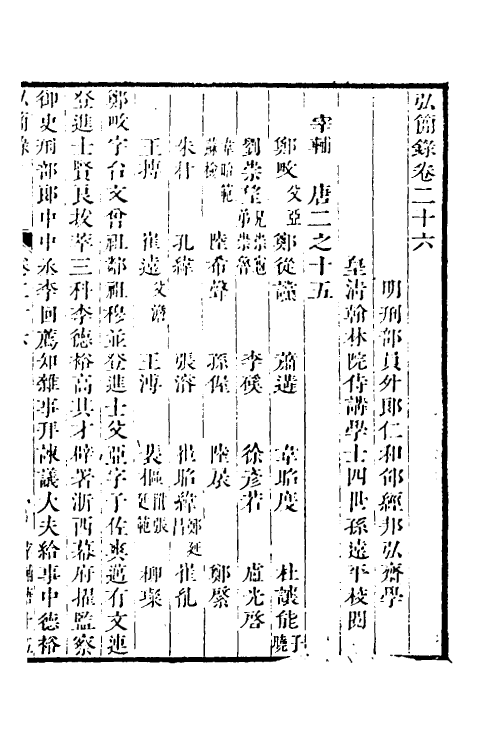 弘簡錄卷二十六
明刑部員外郎仁和邵經邦弘齋學
皇清翰林院侍講學士四世孫遠平校閱
宰輔 唐二之十五
鄭畋 父亞 鄭從讜 蕭遘 韋昭度 杜讓能 子曉
劉崇望 兄崇龜 弟崇魯 李磎 徐彥若 盧光啓
韋貽範 蘇檢 陸希聲 孫偓 陸扆 鄭綮
朱朴 孔緯 張濬 崔昭緯 鄭延昌 崔胤
王搏 崔遠 父澹 王溥 裴樞 獨孤損 張廷範 柳璨
鄭畋字台文曾祖鄰祖穆並登進士父亞字子佐爽邁有文連
登進士賢良拔萃三科李德裕高其才辟署浙西幕府擢監察
御史刑部郎中中丞李回薦知雜事拜諫議大夫給事中德裕